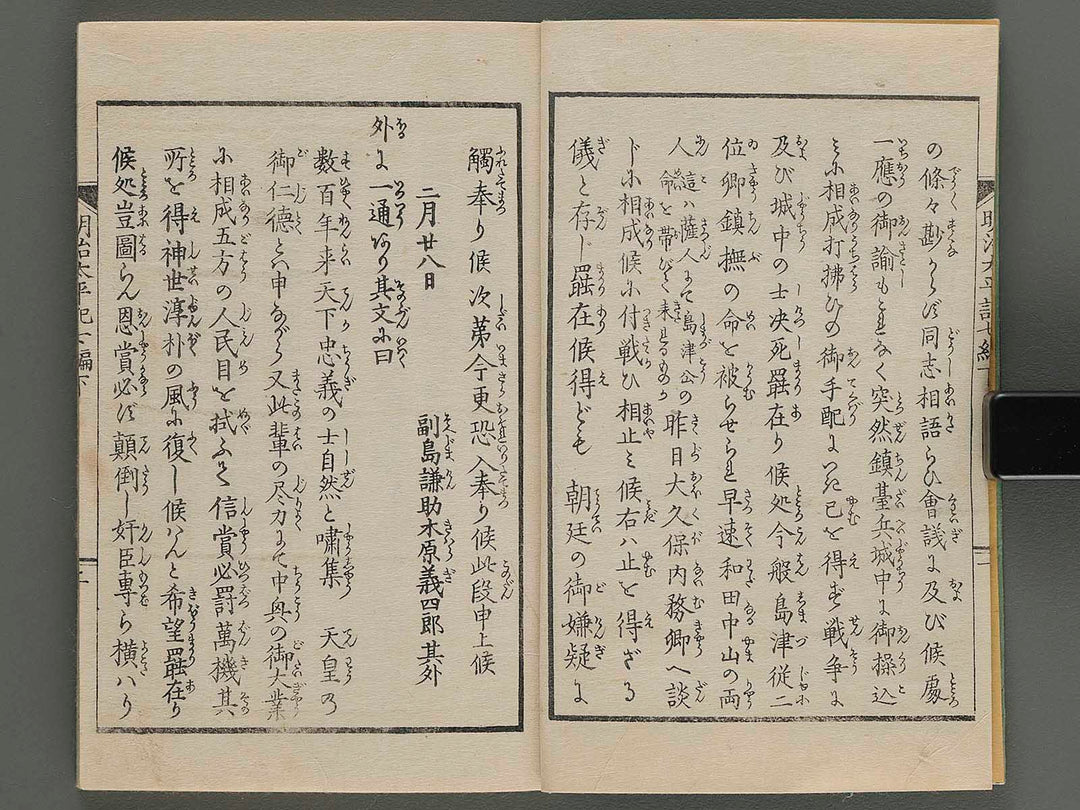 の條々勘からず同志相語らひ會議に及び候處
一應の御諭もこれなく突然鎮臺兵城中に御操込
みに相成打拂ひの御手配につき已を得ず戦争に
及び城中の士决死罷在り候処今般島津従二
位卿鎮撫の命を被らせられ早速和田中山の両
人這ハ薩人にて島津公の命を帯びて来れるもの歟昨日大久保内務卿へ談
じに相成候に付戦ひ相止ミ候右ハ止を得ざる
儀と存じ罷在候得ども 朝廷の御嫌疑に
觸奉り候次第今更恐入奉り候此段申上候
二月廿八日
副島謙助木原義四郎其外
外に一通あり其文に曰
数百年来天下忠義の士自然と嘯集 天皇の
御仁德とハ申ながら又此輩の尽力にて中興の御大業
に相成五方の人民目を拭ふて信賞必罰萬機其
所を得神世淳朴の風に復し候はんと希望罷在り
候処豈圖らん恩賞必ず顛倒し奸臣專ら横ハり
明治太平記七編下